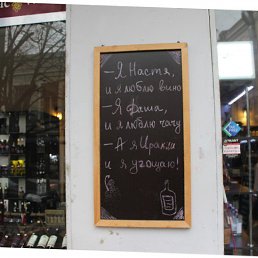 — Я Настя,
и я люблю вино
— Я Фаша,
и я люблю чачу
— А я Иракли
и я угощаю!